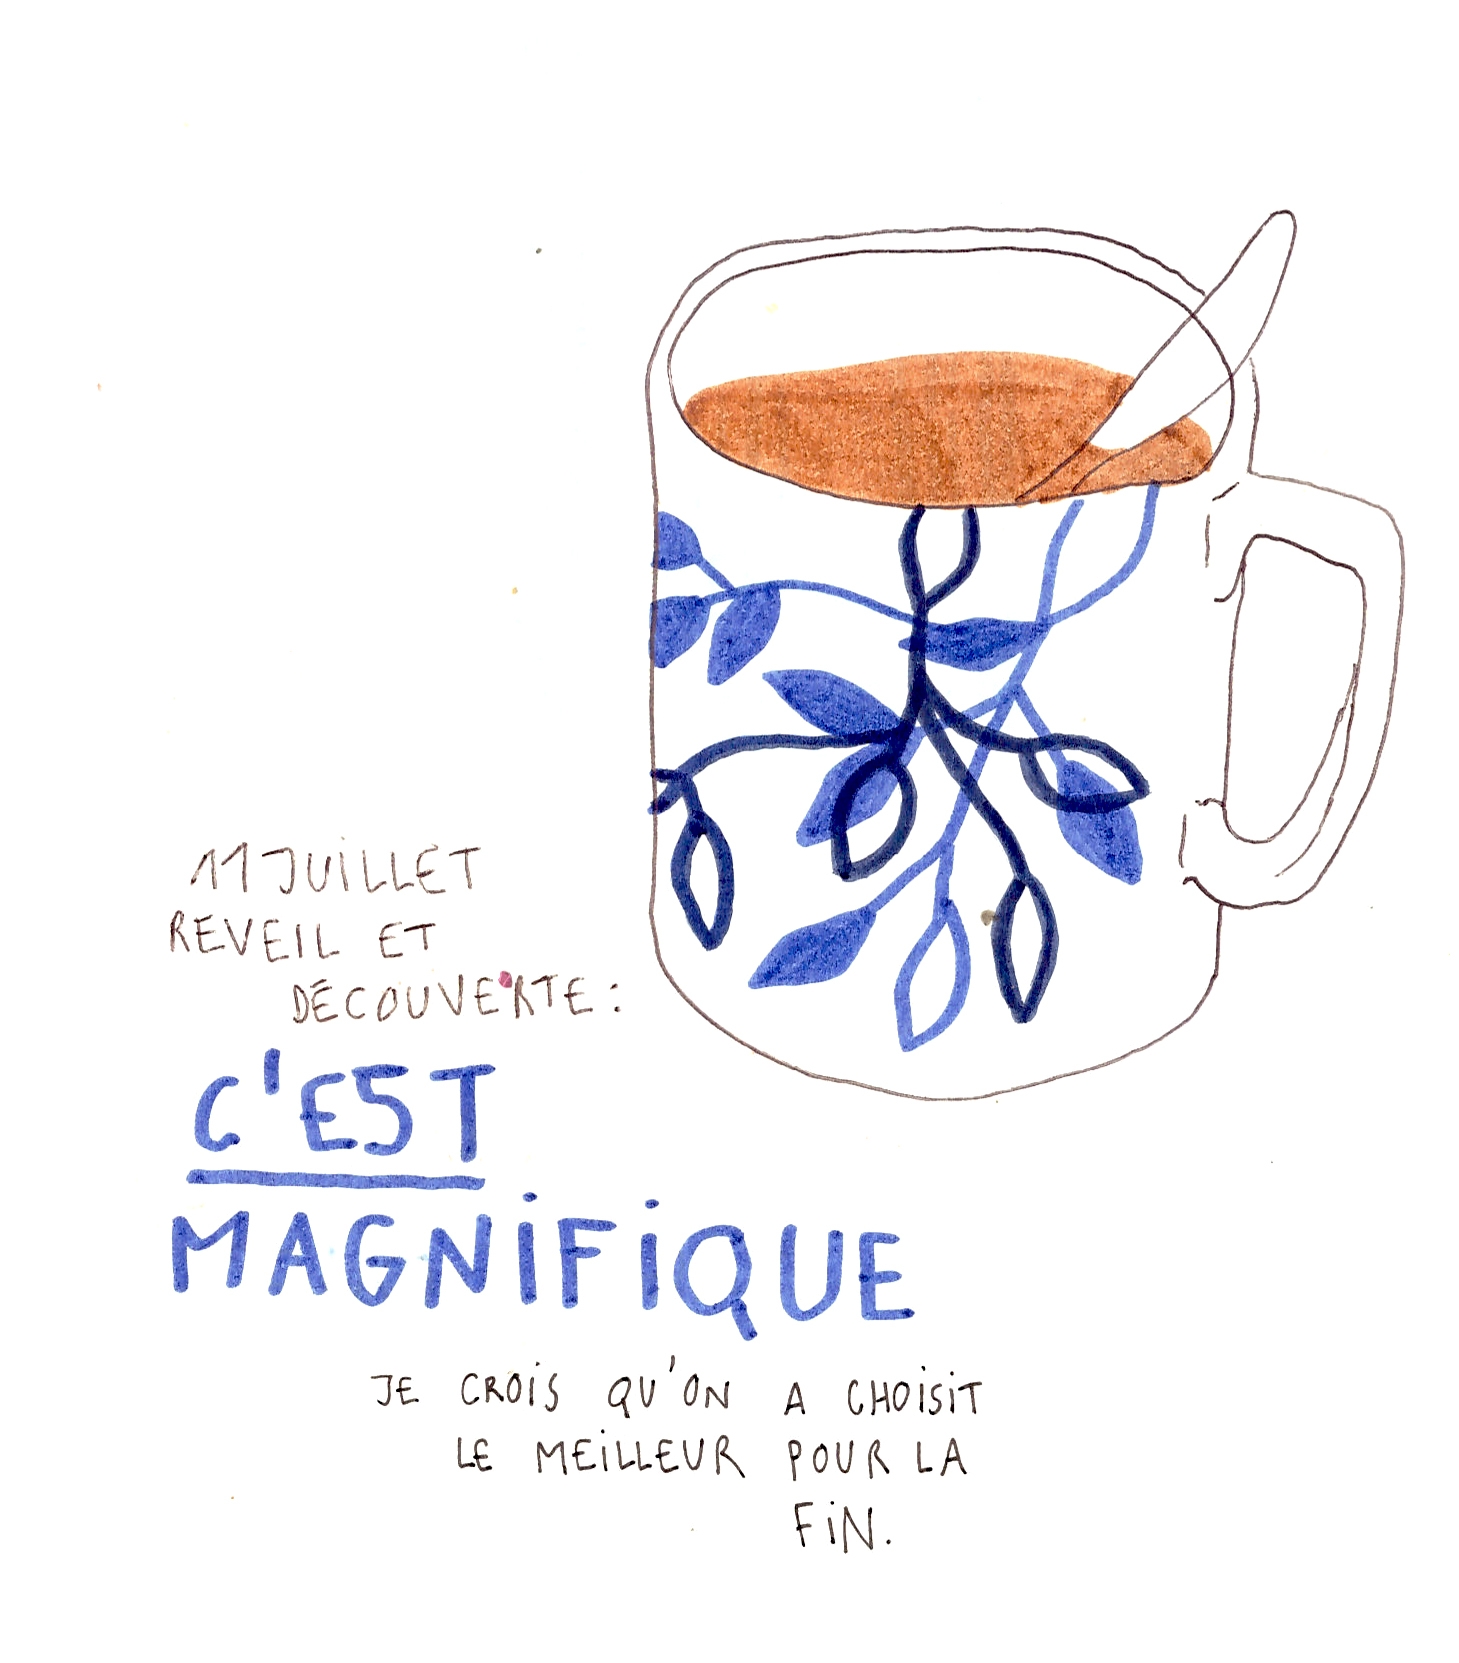 11 JUiLLET
REVEIL ET
DÉCOUVERTE :
C'EST
MAGNiFiQUE
JE CROiS QU'ON A CHOiSiT
LE MEiLLEUR POUR LA
FiN.